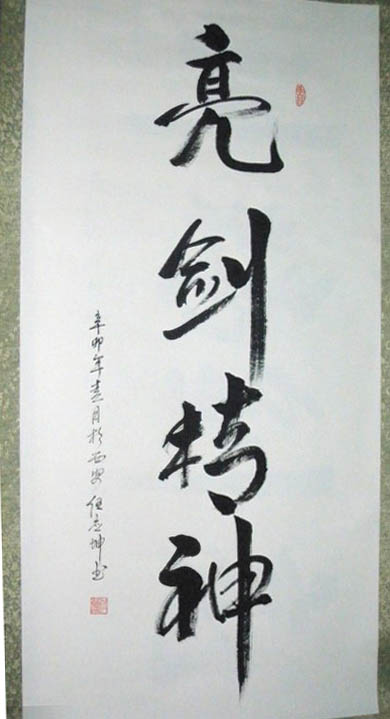 亮剑精神
辛卯年春月於西安 任志坤书